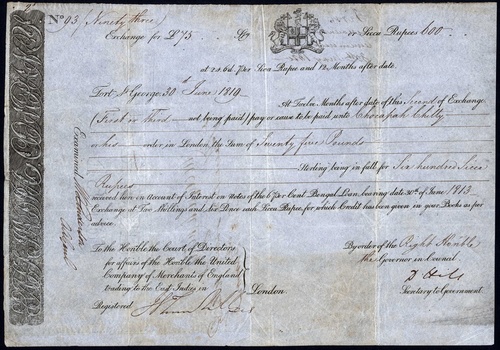 No 93 (Ninety three)
Exchange for £75 or Sicca Rupees 600
at 2s. 6d. per Sicca Rupee and 12 Months after date.
Fort St George 30th June 1819
At Twelve Months after date of this Second of Exchange
(First or Third not being paid) pay or cause to be paid unto Chocapah Chitty
or his order in London, the Sum of Seventy five Pounds
Sterling being in full for Six hundred Sicca
Rupees
received here on Account of Interest on Notes of the 6 per Cent Bengal Loan bearing date 30th of June 1813
Exchange at Two Shillings and Six Pence each Sicca Rupee, for which Credit has been given in your Books as per
advice.
To the Honble the Court of Directors
for affairs of the Honble the United
Company of Merchants of England
trading to the East Indies in London
Registered
By order of the Right Honble
the Governor in Council
Secretary to Government
Examined